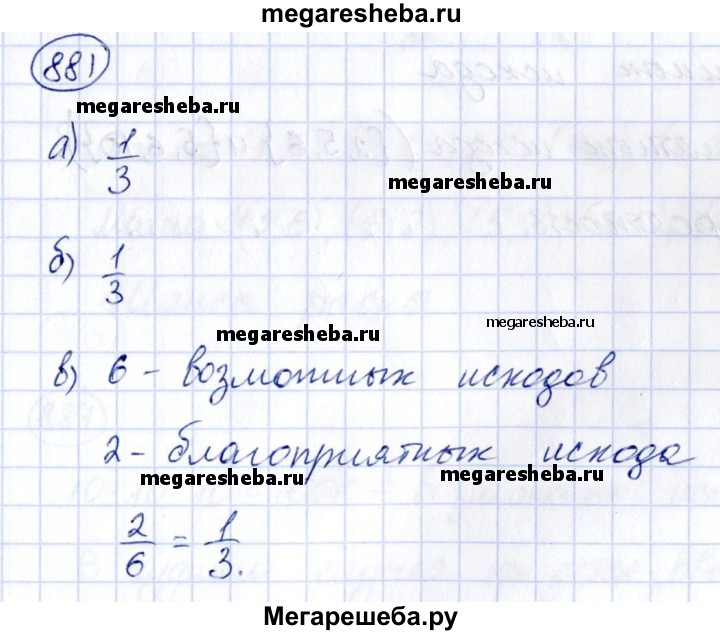 megaresheba.ru
881
megaresheba.ru
а) 1/3
megaresheba.ru
б) 1/3
megaresheba.ru
megaresheba.ru
в) 6 - возможных исходов
2 - благоприятных исхода
megaresheba.ru
megaresheba.ru
2/6 = 1/3.
Мегарешеба.ру